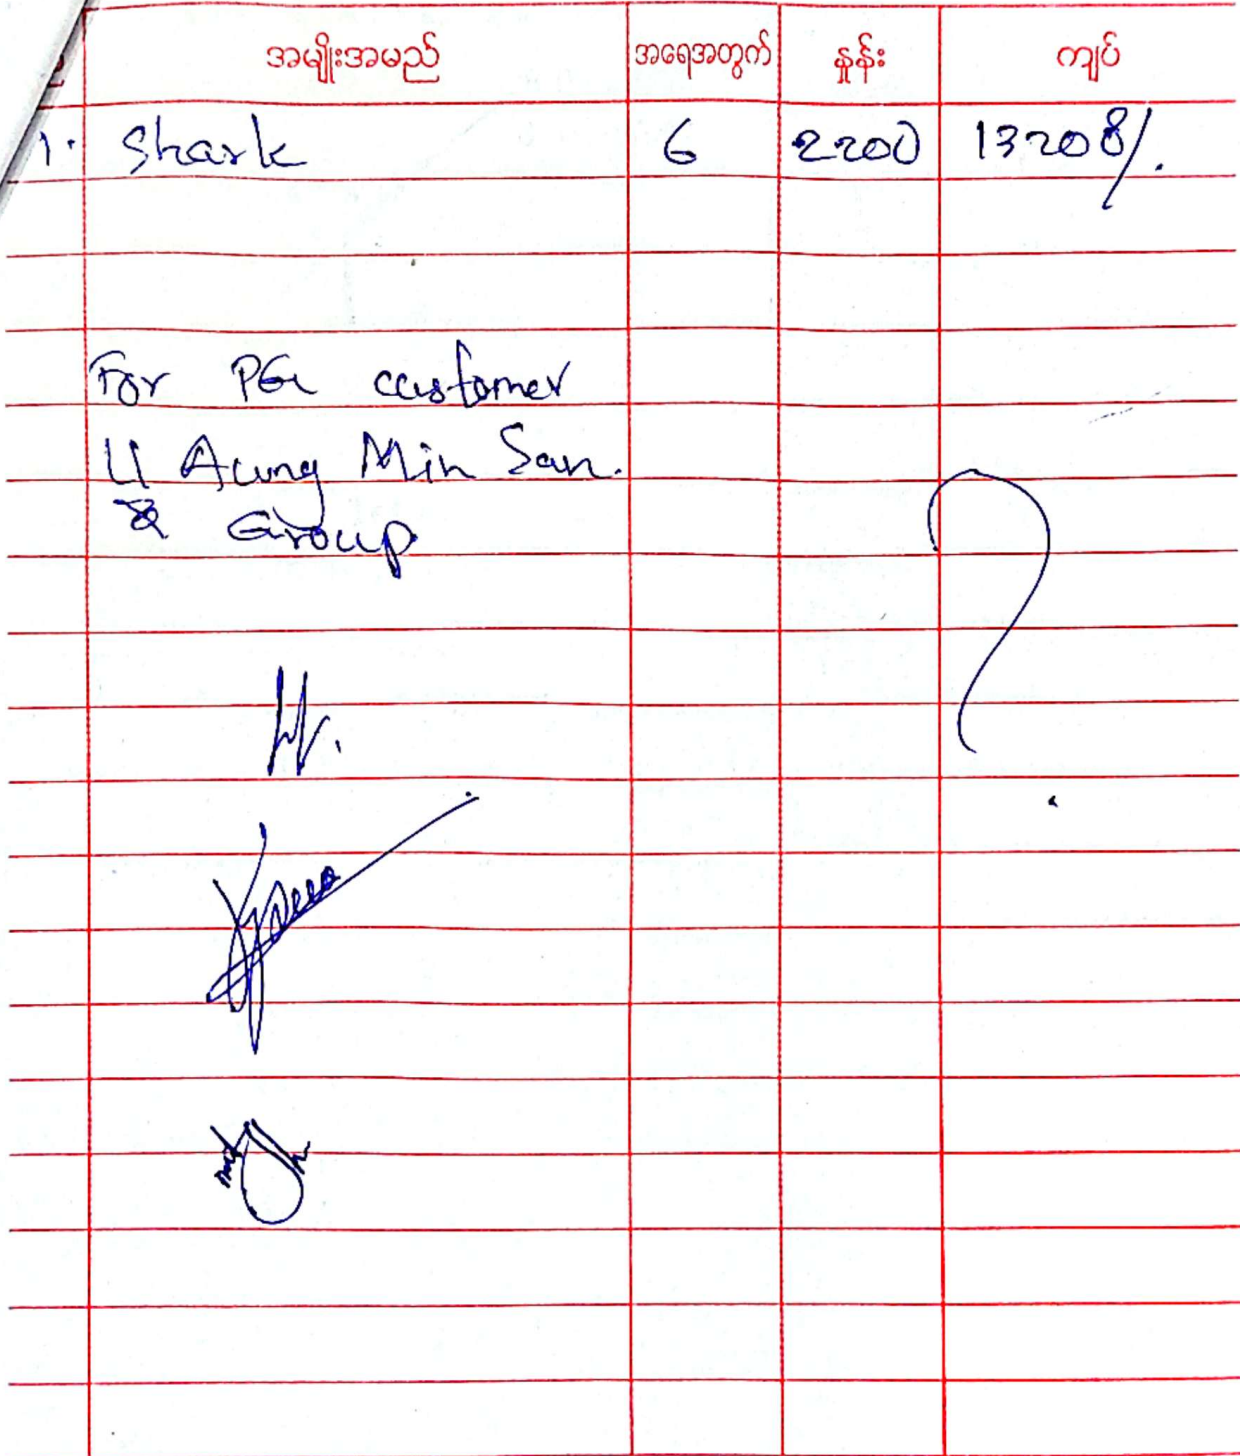 အမျိုးအမည် အရေအတွက် နှုန်း ကျပ်
1. Shark 6 2200 13200/.
For PG customer
U Aung Min San.
& Group